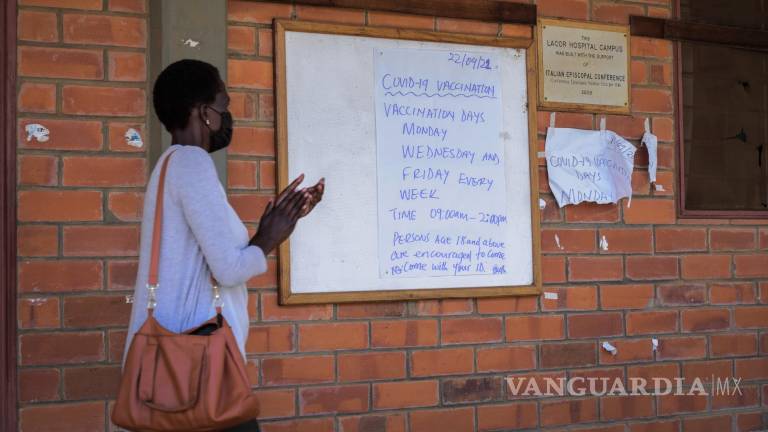 22/09/21
COVID-19 VACCINATION
VACCINATION DAYS
MONDAY
WEDNESDAY AND
FRIDAY EVERY
WEEK
TIME 09:00am - 2:00pm
PERSONS AGE 18 and above
are encouraged to come
Come with your ID.
THE
LACOR HOSPITAL CAMPUS
WAS BUILT WITH THE SUPPORT
OF
ITALIAN EPISCOPAL CONFERENCE
COVID-19
DAYS
MONDAY
VANGUARDIA MX